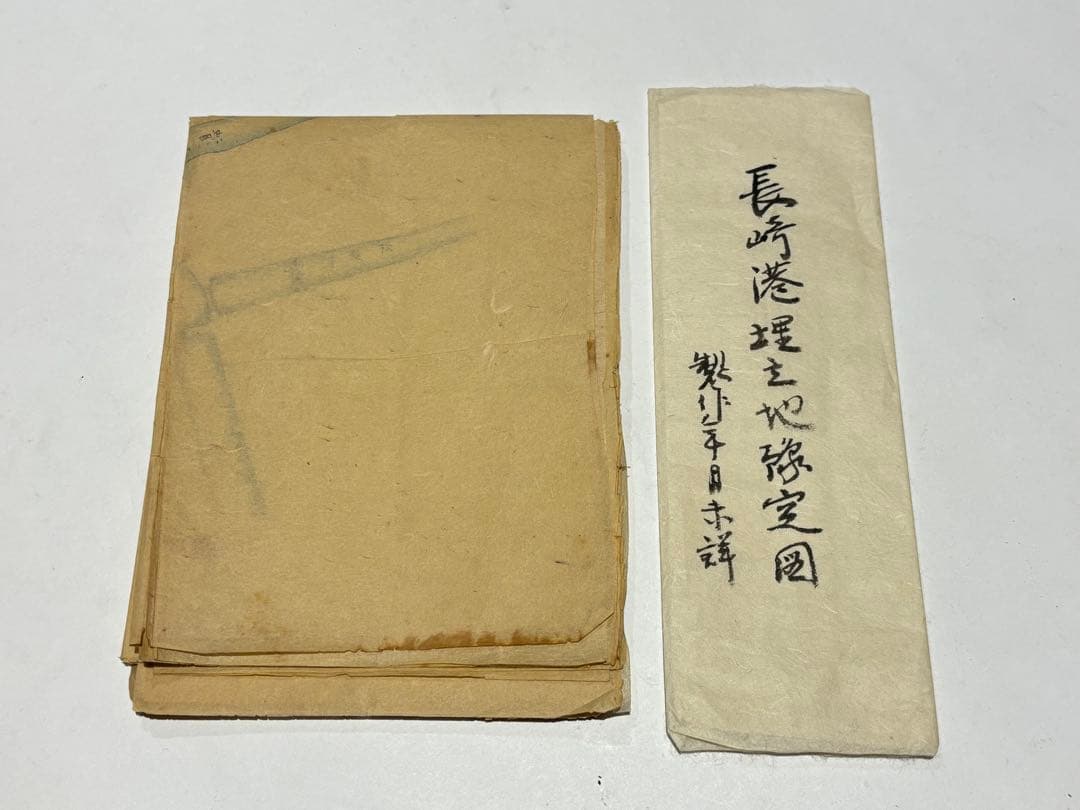 長崎港埋立地豫定図
製作年月未詳